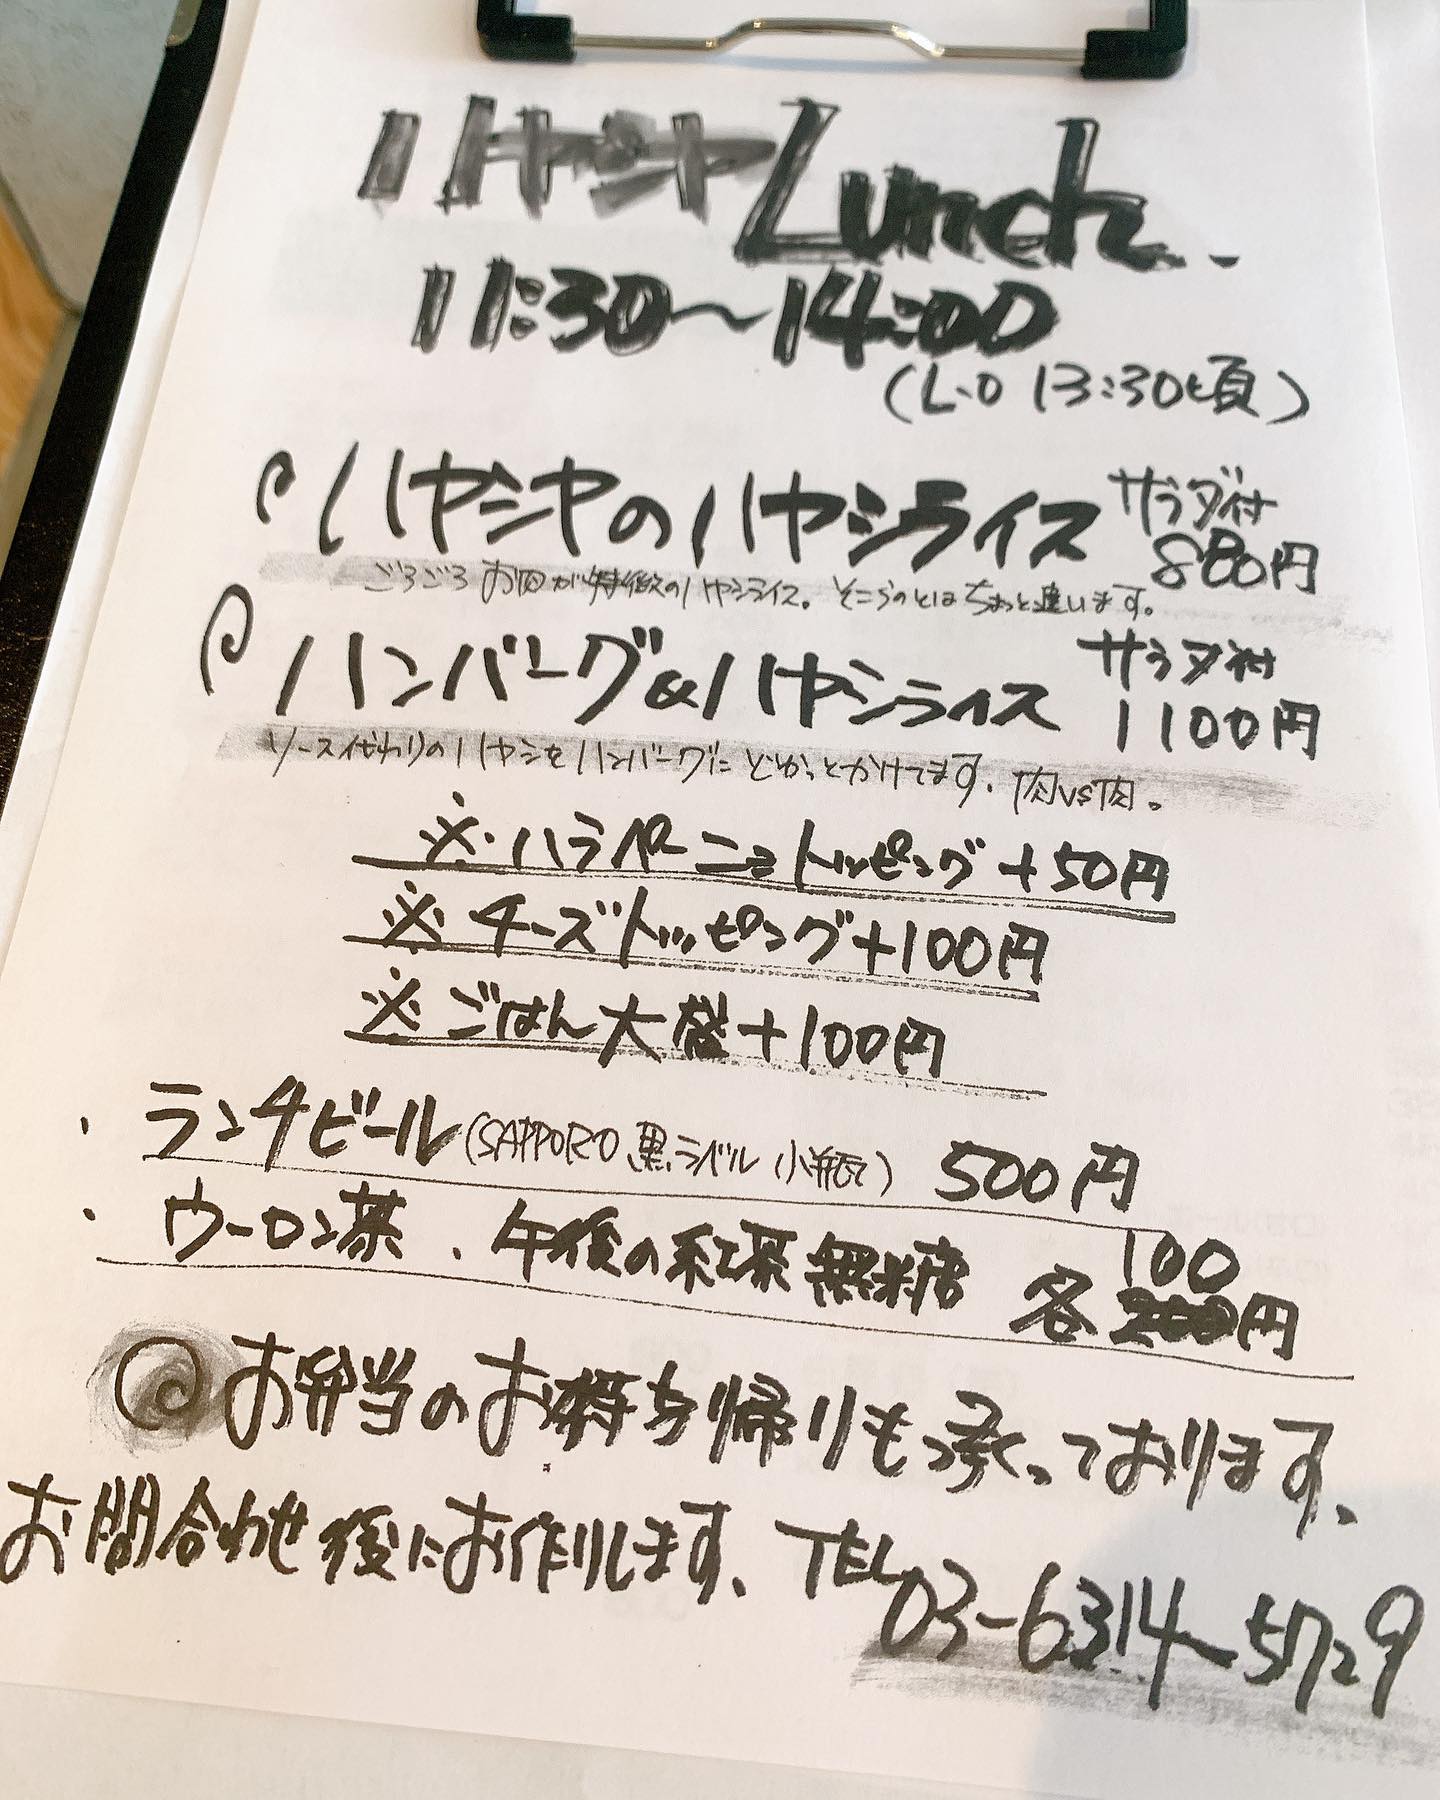 ハヤシヤ Lunch.
11:30〜14:00
(L.O 13:30頃)
ハヤシヤのハヤシライス サラダ付 880円
ごろごろお肉が特徴のハヤシライス。そこらのとはちょっと違います。
ハンバーグ&ハヤシライス サラダ付 1100円
ソース代わりのハヤシをハンバーグにどかっとかけてます、肉vs肉。
※ハラペーニョトッピング+50円
※チーズトッピング+100円
※ごはん大盛+100円
・ランチビール(SAPPORO 黒ラベル 小瓶) 500円
・ウーロン茶、午後の紅茶無糖 各100円
お弁当のお持ち帰りもっ承っております、
お問合わせ後にお作りします、TEL 03-6314-5729